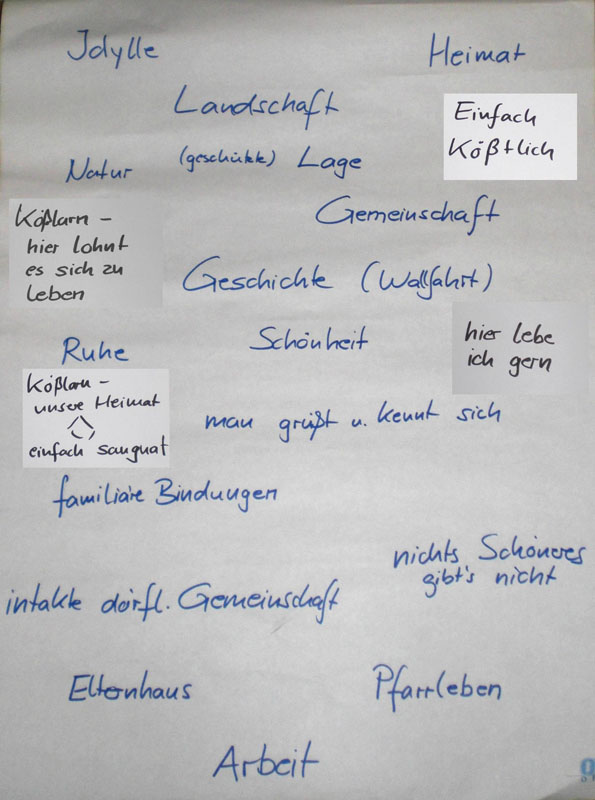 Idylle
Heimat
Landschaft
Einfach
Kößtlich
Natur
(geschützte) Lage
Gemeinschaft
Kößlarn -
hier lohnt
es sich zu
leben
Geschichte (Wallfahrt)
Ruhe
Schönheit
hier lebe
ich gern
Kößlarn -
unsere Heimat
einfach sauguat
man grüßt u. kennt sich
familiäre Bindungen
nichts Schöneres
gibt's nicht
intakte dörfl. Gemeinschaft
Elternhaus
Pfarrleben
Arbeit